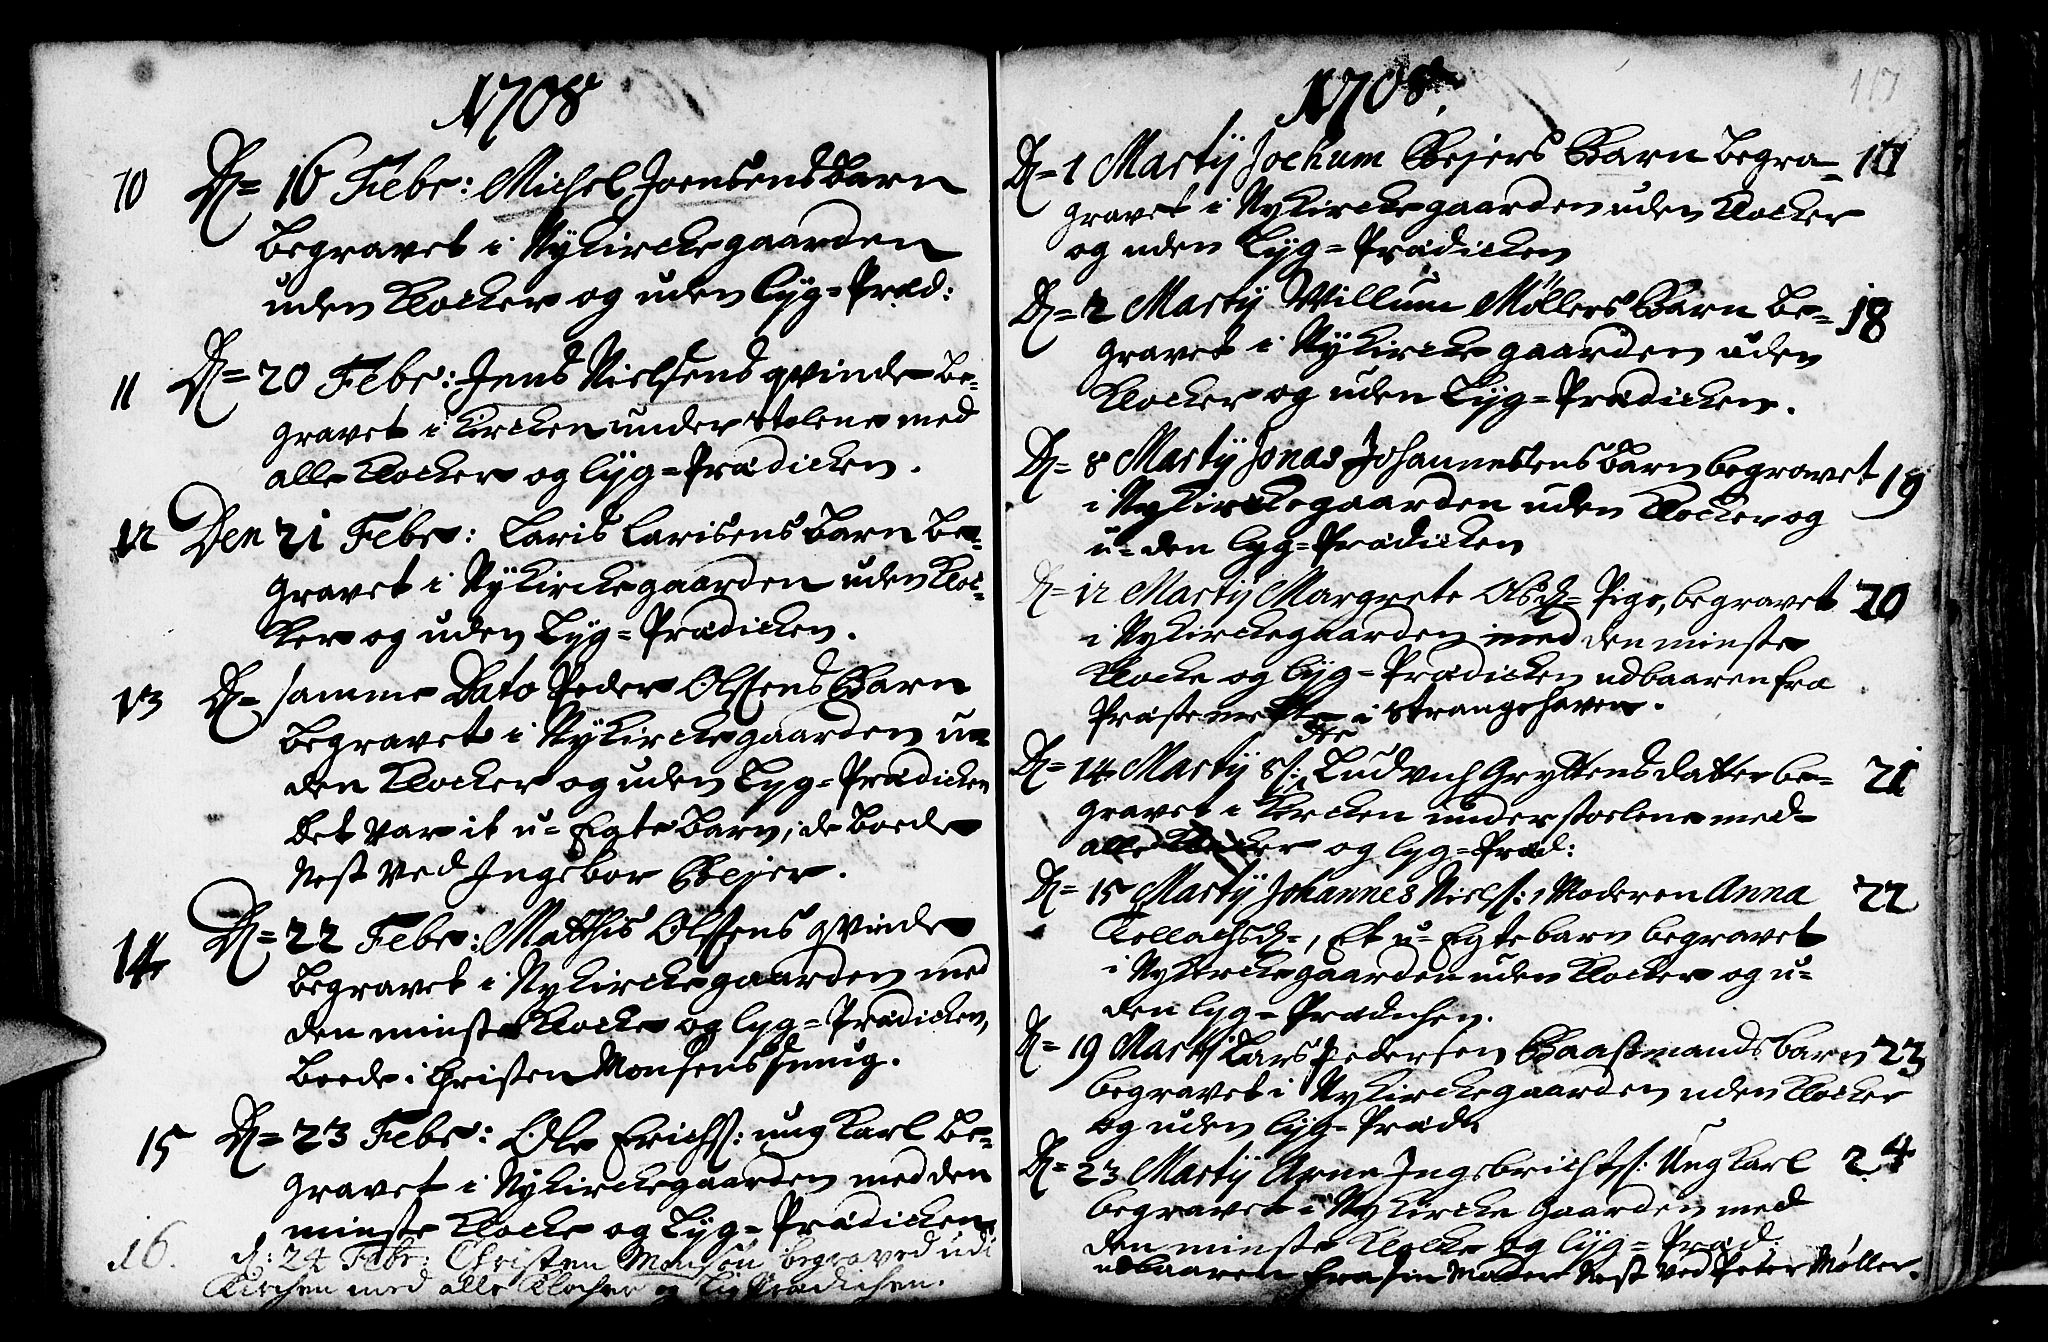 1708
10 D= 16 Febr: Michel Joensens Barn
begravet i Nykirckegaarden
uden Klocker og uden lyg=Præd:
11 D= 20 Febr: Jens Nielsens qvinde be=
gravet i Kircken under stolene med
alle Klocker og lyg=Prædicken.
12 Den 21 Febr: Laris Larisens Barn be=
gravet i Nykirckegaarden uden Kloc=
ker og uden Lyg=Prædicken.
13 D= samme Dato Peder Olsens Barn
begravet i Nykirckegaarden u=
den Klocker og uden Lyg=Prædicken
Det var it u=Egte barn, de boede
Nest ved Ingebor Beyer.
14 D= 22 Febr: Matthis Olsens qvinde
begravet i Nykirckegaarden med
den minste Klocke og lyg=Prædicken,
boede i Christen Monsens smug.
15 D= 23 Febr: Ole Erichs: ung Karl be=
gravet i Nykirckegaarden med den
minste Klocke og Lyg=Prædicken
16. d: 24 Febr: Christen Monsøn begraved udi
Kirchen med alle Klocher og Lig Prædichen.
1708.
117
D= 1 Martij Jochum Beyers Barn begra= 17
gravet i Nykirckegaarden uden Klocker
og uden Lyg=Prædicken
D= 2 Martij Willum Møllers Barn be= 18
gravet i Nykircke gaarden uden
Klocker og uden Lyg=Prædicken.
D= 8 Martij Jonas Johannesens barn begravet 19
i Nykirckegaarden uden Klocker og
u=den lyg=Prædicken
D= 12 Martij Margrete Olsd= Pige, begravet 20
i Nykirckegaarden med den minste
Klocke og lyg=Prædicken udbaaren fra
Præste i Strangehaven.
D= 14 Martij S/: Ludvich Gryttens datter be= 21
gravet i Kircken under stoelene med
alle Klocker og lyg=Præd:
D= 15 Martij Johannes Niels: , Moderen Anna 22
Tollachsd=, Et u=Egte barn begravet
i Nykirckegaarden uden Klocker og u=
den lyg=Prædichen.
D= 19 Martij Lars Pedersen Baassmands barn 23
begravet i Nykirckegaarden uden Klocker
og uden lyg=Præd:
D= 23 Martij Arne Ingebrichts: Ung Karl 24
begravet i Nykircke Gaarden med
den minste Klocke og lyg=Præd:
udbaaren fra sin Moder Nest ved Peter Møller.